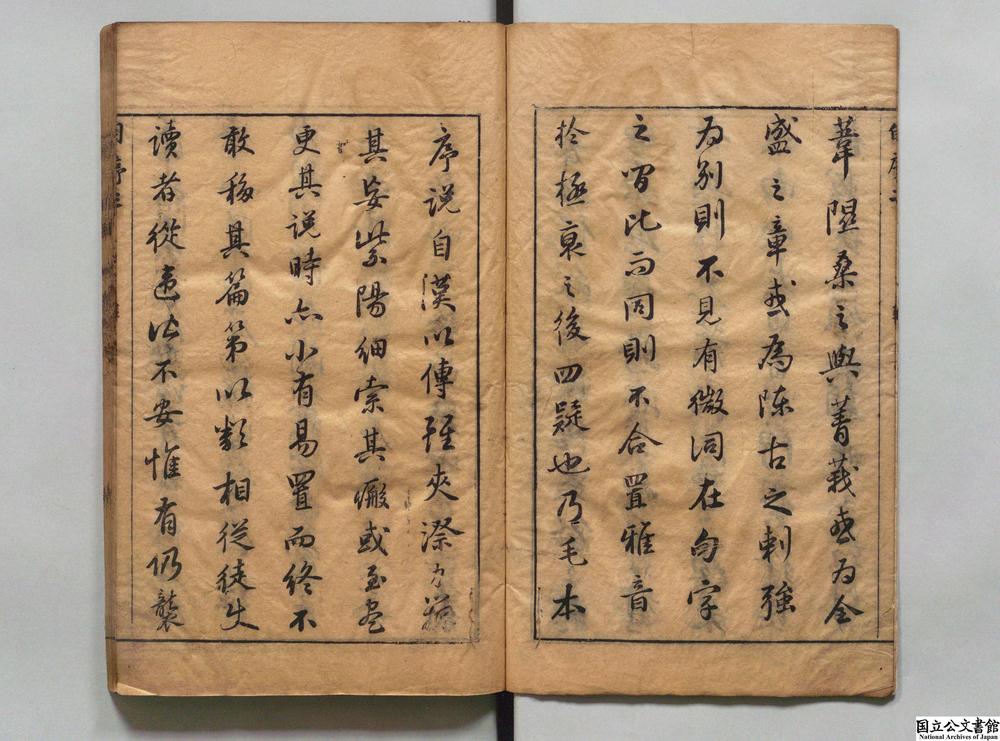 葦隰桑之與菁莪或为全
盛之章或為陳古之刺強
为别則不見有微词在句字
之間比而同則不合置雅音
於極衰之後四疑也乃毛本
序說自漢以傳經夾漈力辯
其妄紫陽細索其癥或至盡
更其說時亦小有易置而終不
敢移其篇第以類相從徒使
讀者從違皆不安惟有仍襲
自序二
自序三
国立公文書館
National Archives of Japan